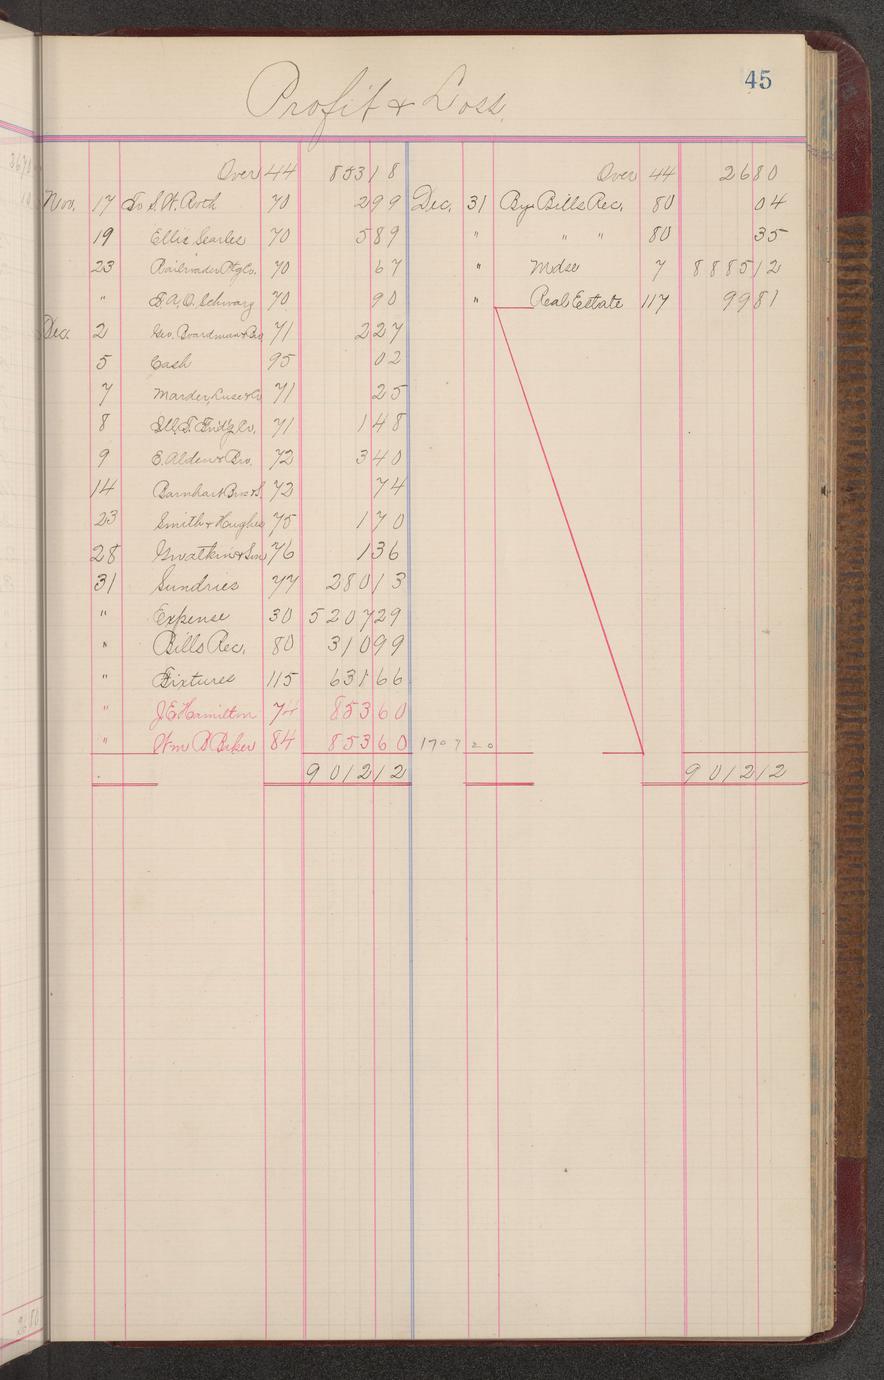 45
Profit & Loss.
Over 44 853 18 Over 44 26 80
Nov. 17 To S.W. Roth 70 2 99 Dec. 31 By Bills Rec. 80 04
19 Ellis Searles 70 5 89 " " " 80 35
23 Railroader Ptg Co. 70 67 " Mdse 7 8885 12
" 70 90 " Real Estate 117 99 81
Dec. 2 Geo. Boardman & Bro 71 2 27
5 Cash 95 02
7 Marder, Luse & Co 71 25
8 71 1 48
9 E. Alden & Bro. 72 3 40
14 Barnhart Bros & S. 72 74
23 Smith & Hughes 75 1 70
28 Gwatkin & Son 76 1 36
31 Sundries 77 280 13
" Expense 30 5207 29
" Bills Rec. 80 310 99
" Fixtures 115 631 66
" J E Hamilton 74 853 60
" Wm B Baker 84 853 60 1707 20
9012 12 9012 12